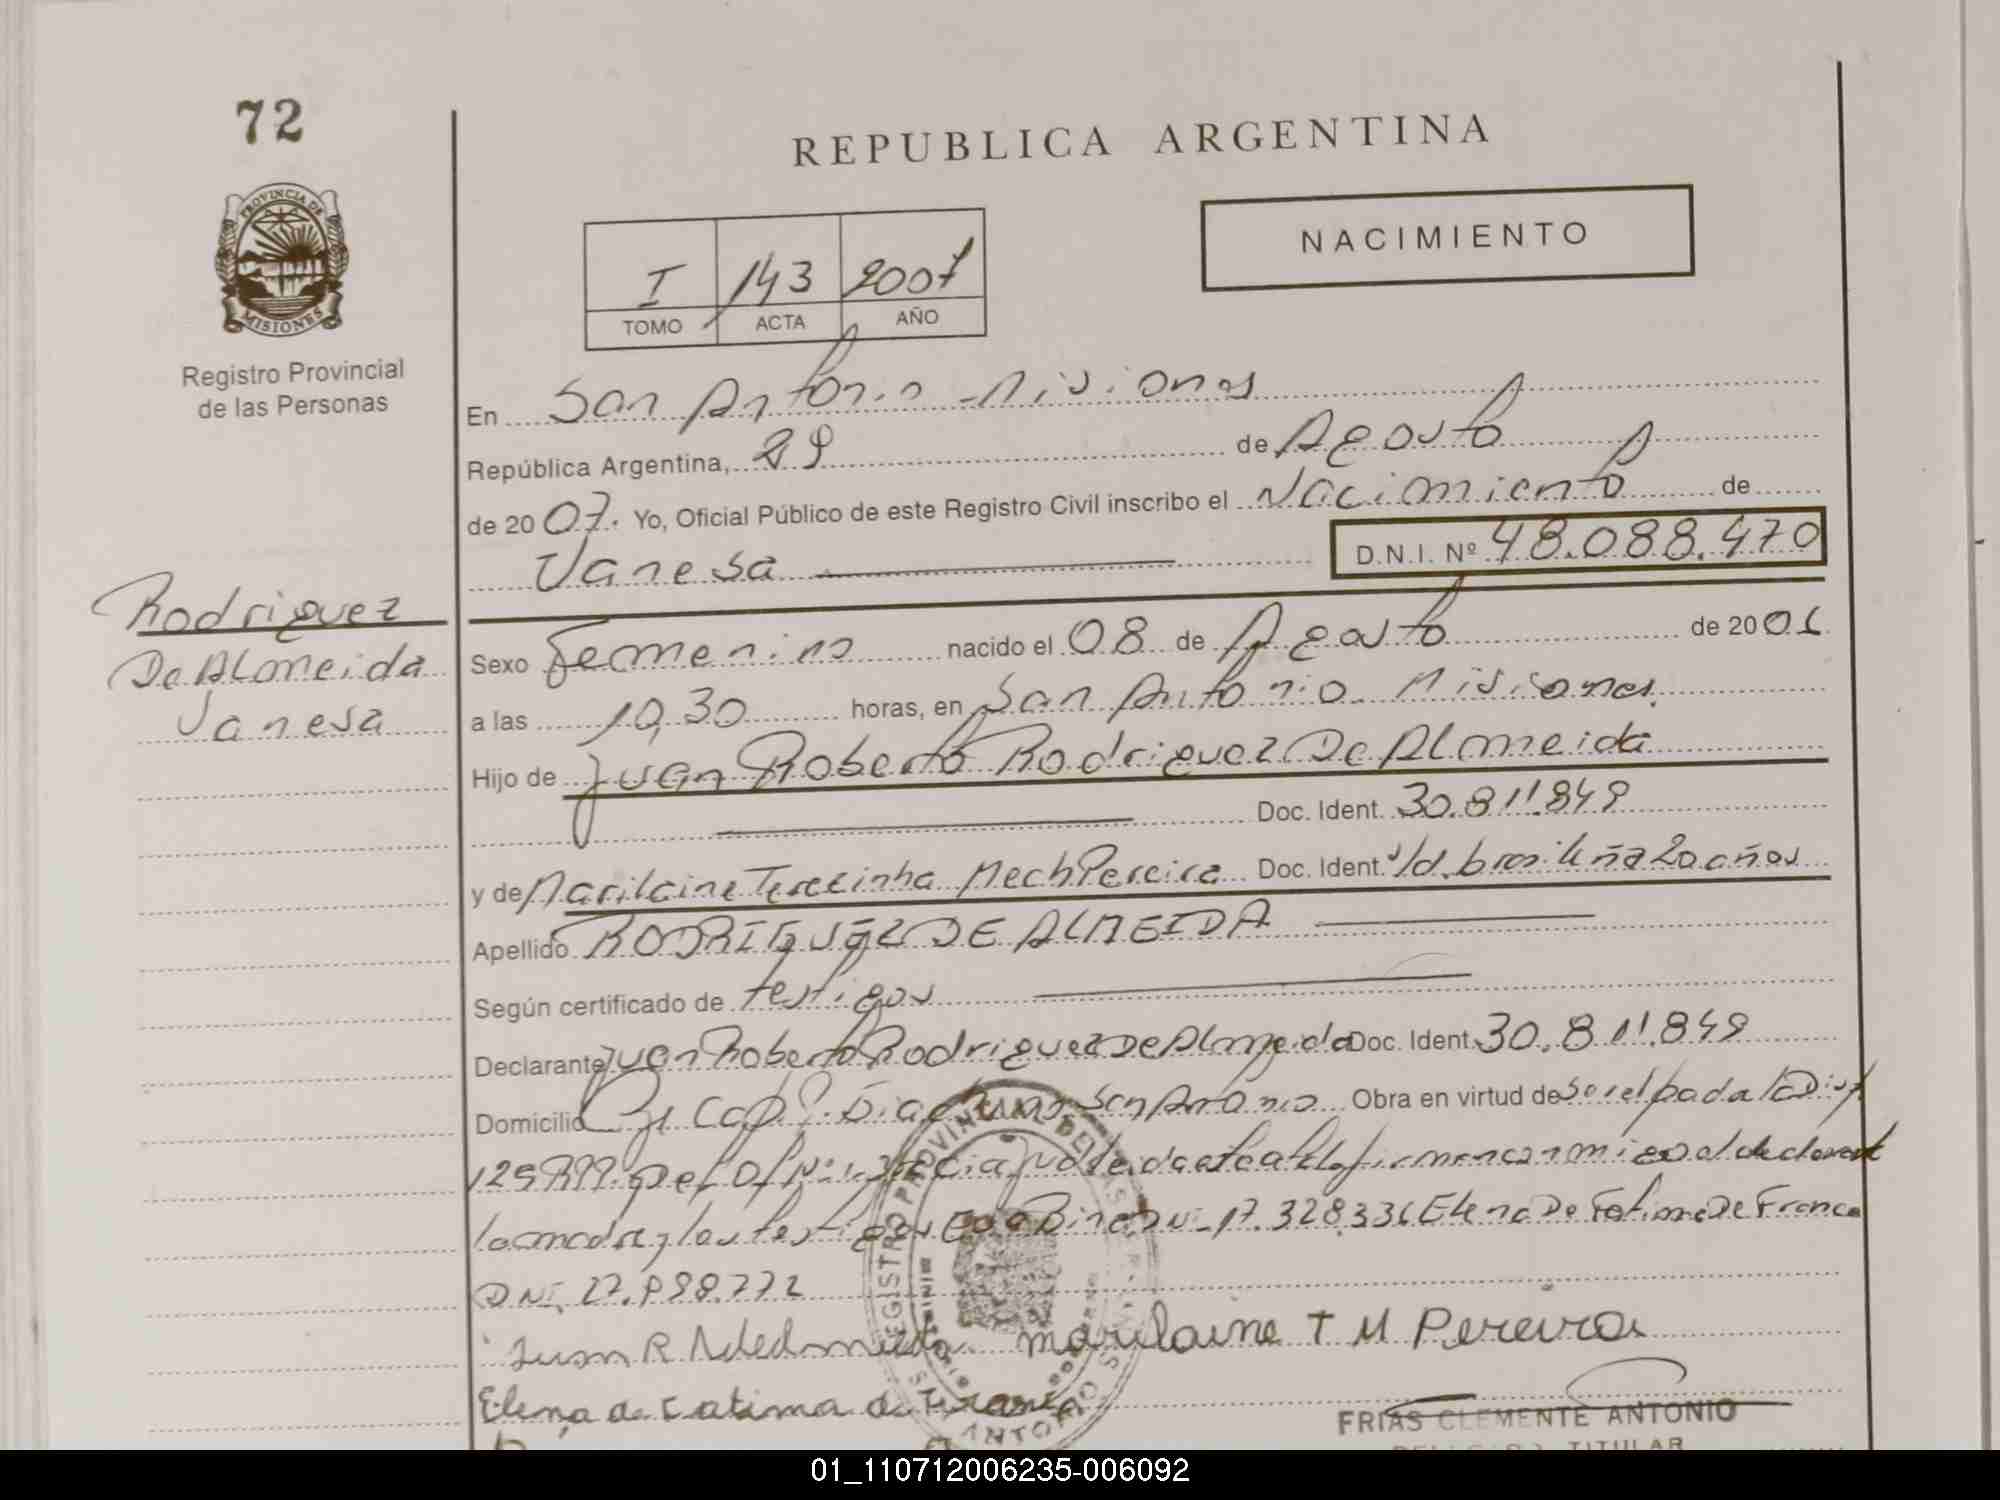 72
REPUBLICA ARGENTINA
PROVINCIA DE
MISIONES
I 143 2007
TOMO ACTA AÑO
NACIMIENTO
Registro Provincial
de las Personas
En San Antonio - Misiones
República Argentina, 29 de Agosto
de 2007. Yo, Oficial Público de este Registro Civil inscribo el Nacimiento de
Vanesa D.N.I. Nº 48.088.470
Rodriguez
De Almeida
Vanesa
Sexo Femenino nacido el 08 de Agosto de 2006
a las 10,30 horas, en San Antonio - Misiones
Hijo de Juan Roberto Rodriguez De Almeida
Doc. Ident. 30.811.849
y de Marilaine Terezinha Mech Pereira Doc. Ident. s/d. brasileña 20 años
Apellido RODRIGUEZ DE ALMEIDA
Según certificado de testigos
Declarante Juan Roberto Rodriguez De Almeida Doc. Ident. 30.811.849
Domicilio San Antonio Obra en virtud de
firman conmigo el declarante
la madre y los testigos DNI 17.328.336 Elena De Fatima De Franca
DNI. 27.998.772
Juan R marilaine T M Pereira
Elena de Fatima de Franca
REGISTRO PROVINCIAL DE LAS PERSONAS
FRIAS CLEMENTE ANTONIO
TITULAR
01_110712006235-006092